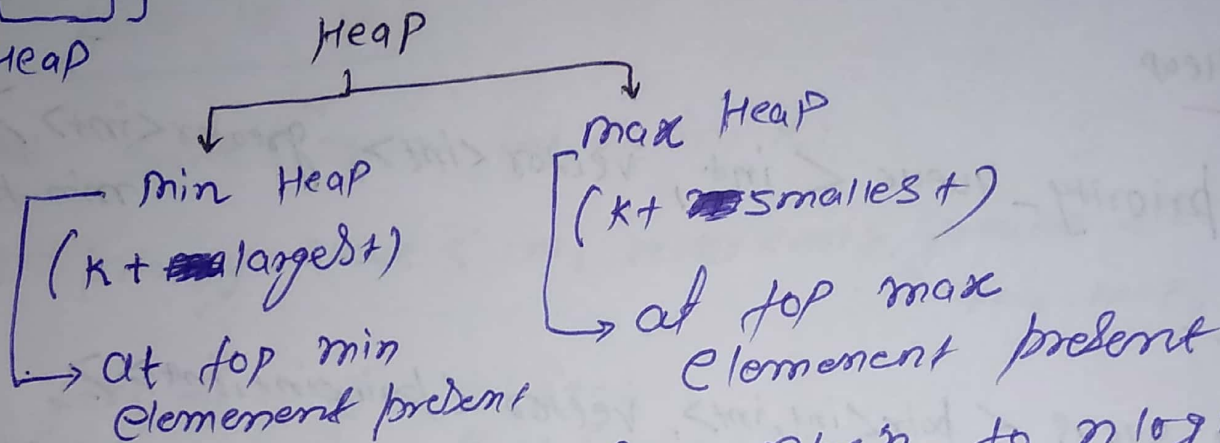 HeaP
HeaP
min HeaP
(K + largest)
at top min
elemenent present
max HeaP
(K+ smallest)
at top max
elemenent present
to n log